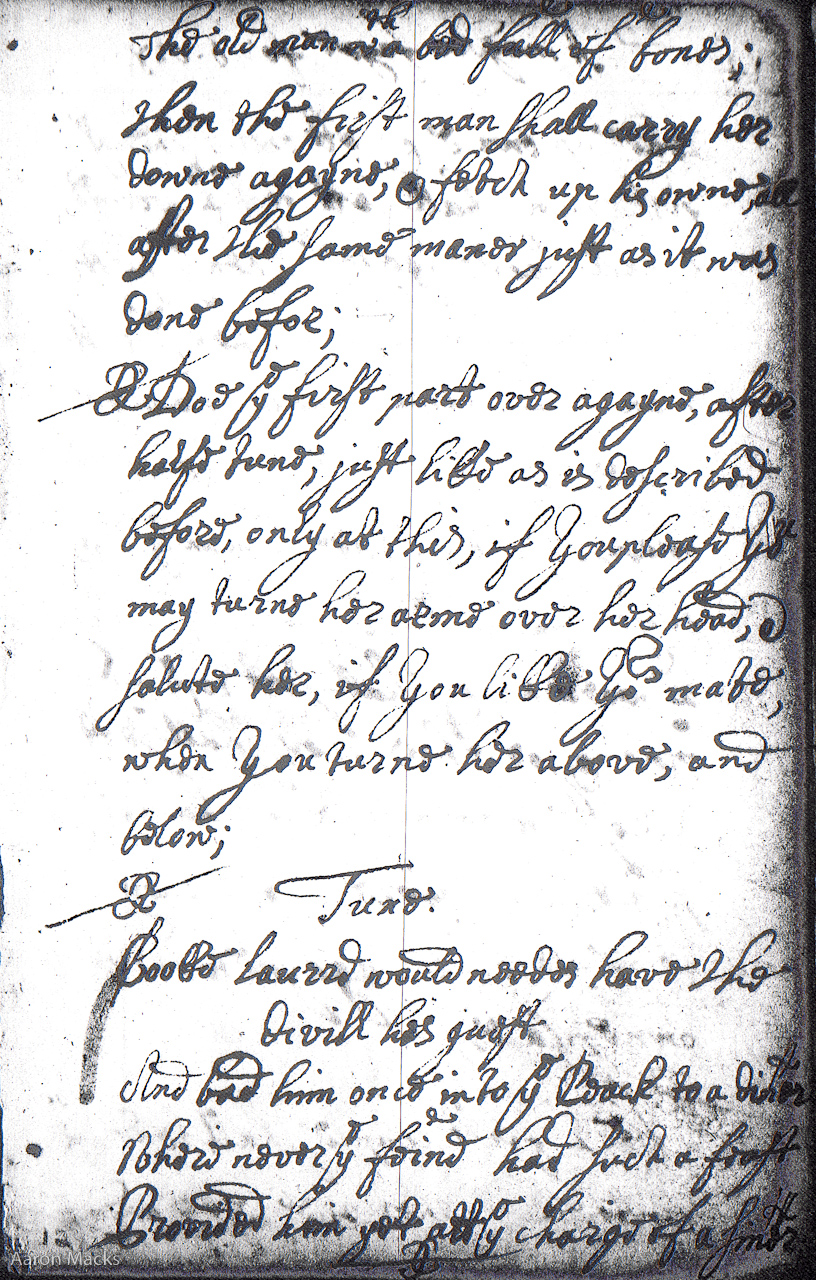 The old man wth a bed full of bones;
then the first man shall carry her
downe agayne, & fetch up his owne, all
after the same maner just as it was
done befor;
Doe ye first part over agayne, after
halfe tune, just like as is described
before, only at this, if you please yu
may turne her arme over her head, &
salute her, if you like yor mate,
when you turne her above, and
below;
Tune.
Cooke laurrd would needes have the
divill his guest
And bad him once into ye Peack to a diner
Where never ye feind had such a feast
Provided him yet att ye charge of a siner
Aaron Macks